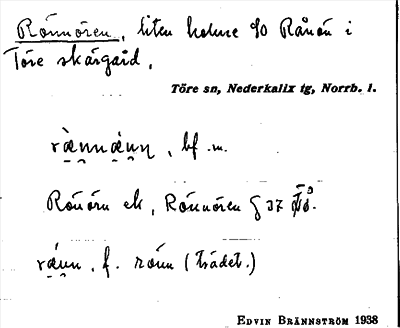 Rönnören, liten holme SO Rånön i
Töre skärgård.
Töre sn, Nederkalix tg, Norrb. l.
bf. m.
Rönörn ek, Rönnören § 37
f. rönn (trädet.)
EDVIN BRÄNNSTRÖM 1938